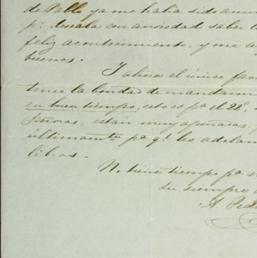 de Pablo ya me había sido anun
pr. desaba con ansiedad saber
feliz acontecimiento, y me a
buenos.
Y ahora el único fav
tener la bondad de mandarm
en buen tiempo, esto es pa el 28
Señoras, están muy apuradas,
últimamte pa qe les adelan
libros.
No tiene tiempo pa
su siempre
A. Ped